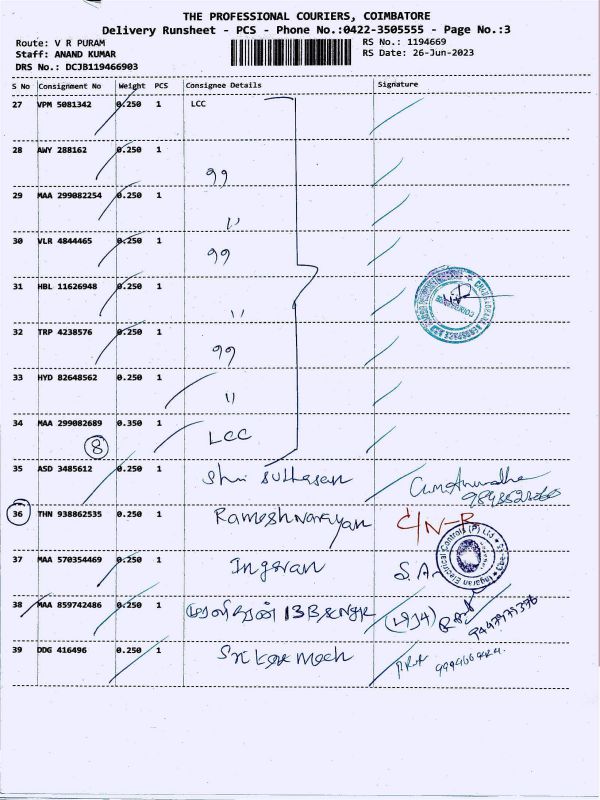 THE PROFESSIONAL COURIERS, COIMBATORE
Delivery Runsheet - PCS - Phone No.:0422-3505555 - Page No.:3
Route: V R PURAM
RS No.: 1194669
Staff: ANAND KUMAR
RS Date: 26-Jun-2023
DRS No.: DCJB119466903
S No Consignment No Weight PCS Consignee Details Signature
27 VPM 5081342 0.250 1 LCC
28 AWY 288162 0.250 1
99
29 MAA 299082254 0.250 1
11
30 VLR 4844465 0.250 1
99
31 HBL 11626948 0.250 1
11
32 TRP 4238576 0.250 1
99
33 HYD 82648562 0.250 1
11
34 MAA 299082689 0.350 1
8 LCC
35 ASD 3485612 0.250 1
36 THN 938862535 0.250 1 Rameshnarayan C/N-R
37 MAA 570354469 0.250 1 Ingavan S.A
38 MAA 859742486 0.250 1
39 DDG 416496 0.250 1